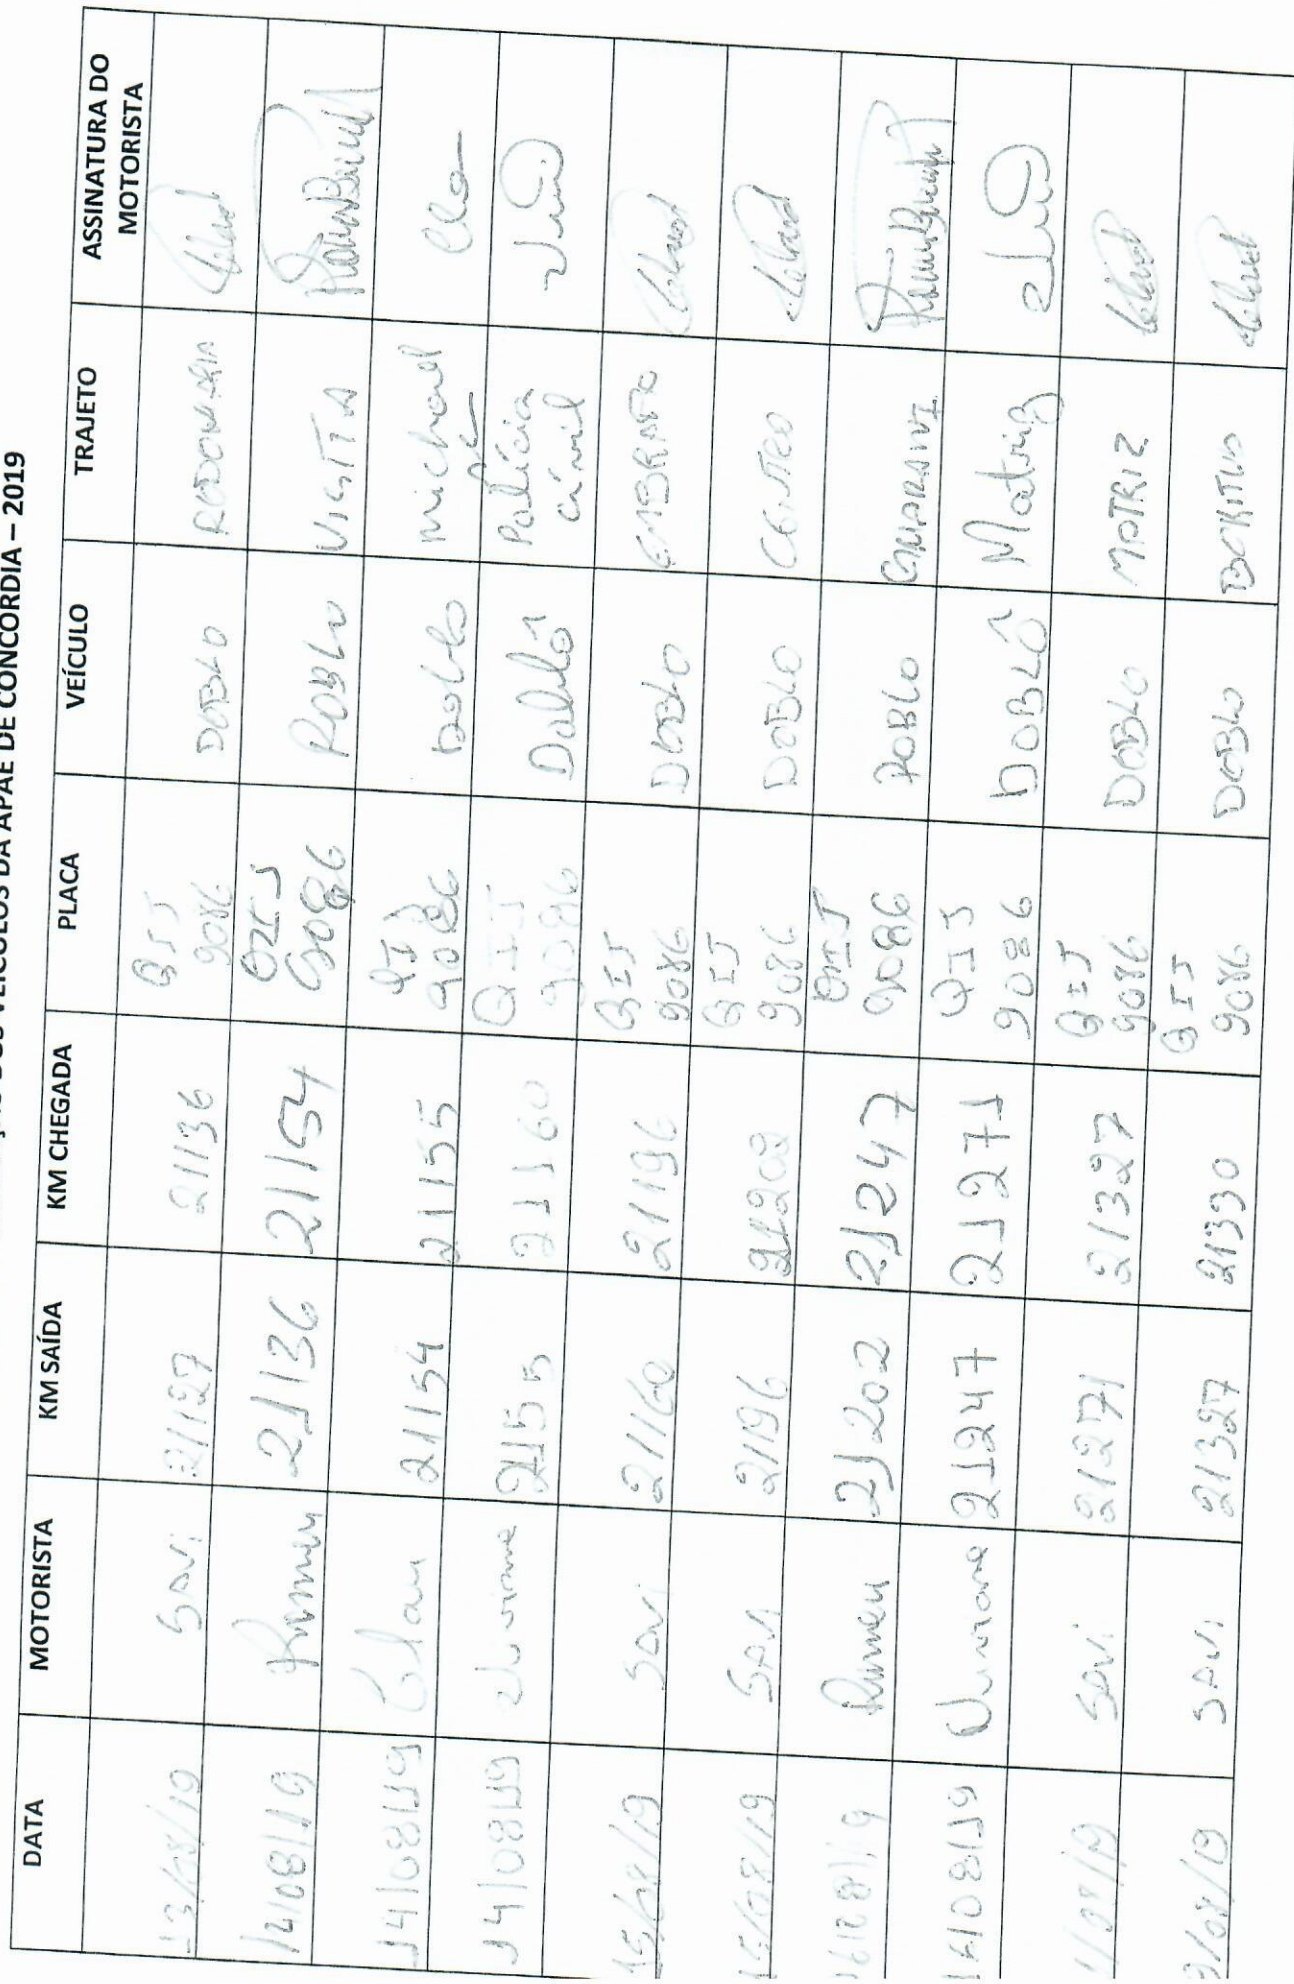 DOS VEÍCULOS DA APAE DE CONCÓRDIA – 2019
DATA MOTORISTA KM SAÍDA KM CHEGADA PLACA VEÍCULO TRAJETO ASSINATURA DO MOTORISTA
13/08/19 SAVI 21127 21136 QIJ 9086 DOBLO RODOVIARIA
14/08/19 21136 21154 9086 DOBLO VISITA
14/08/19 21154 21155 QIJ 9086 Doblo michael
14/08/19 21155 21160 QIJ 9086 Doblô Polícia civil
15/08/19 SAVI 21160 21196 QIJ 9086 DOBLO
15/08/19 SAVI 21196 21202 QIJ 9086 DOBLO CENTRO
16/08/19 21202 21247 QIJ 9086 DOBLO GUARANI
16/08/19 21247 21271 QIJ 9086 DOBLÔ Matriz
/08/19 SAVI 21271 21327 QIJ 9086 DOBLO MATRIZ
9/08/19 SAVI 21327 21330 QIJ 9086 DOBLO